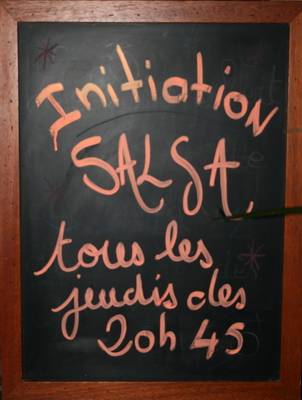 Initiation
SALSA
tous les
jeudis des
20h 45